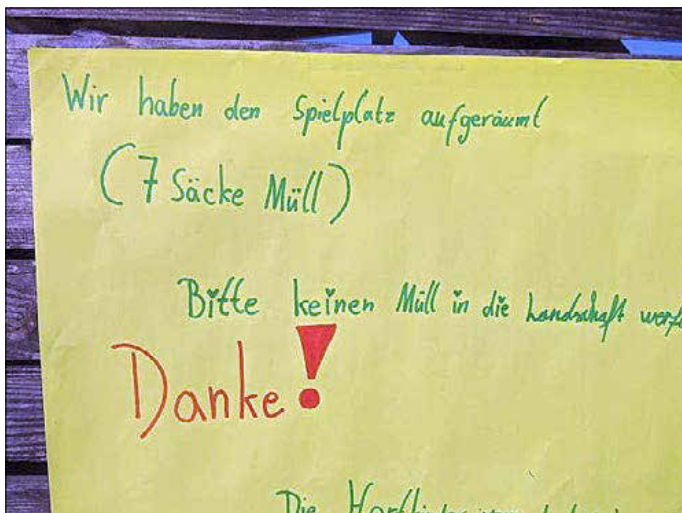 Wir haben den Spielplatz aufgeräumt
(7 Säcke Müll)
Bitte keinen Müll in die Landschaft
Danke!
Die